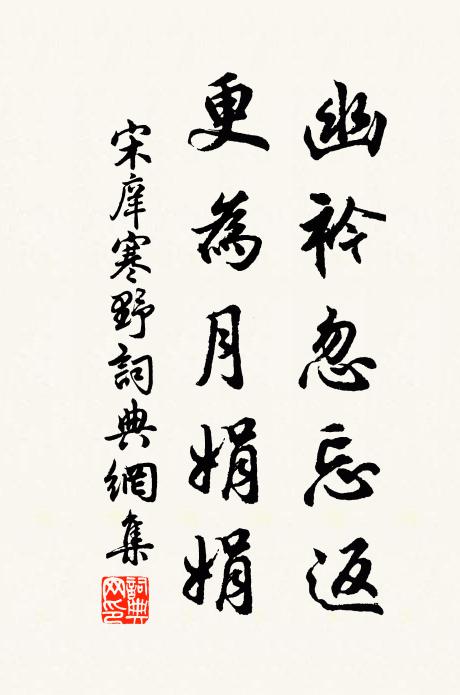 幽衿忽忘返
更為月娟娟
宋庠寒野詞典網集
詞典網印